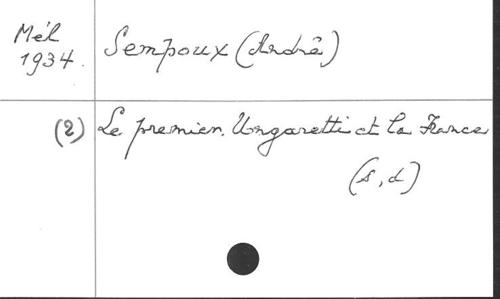 Mél
1934.
Sempoux (André)
(2) Le premier Ungaretti et la France
(s, d)